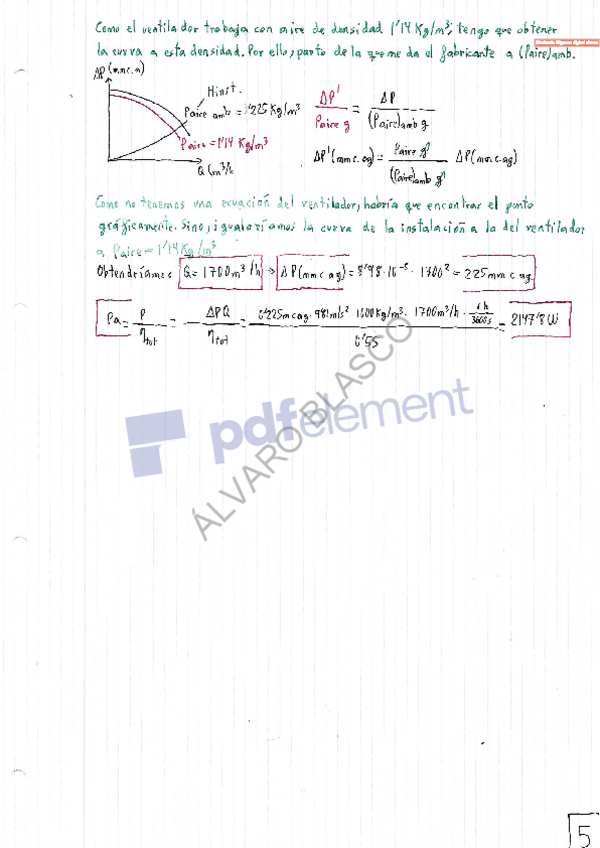 Como el ventilador trabaja con aire de densidad 1'14 Kg/m³, tengo que obtener
la curva a esta densidad. Por ello, parto de la que me da el fabricante a (ρaire)amb.
ΔP (mm c.a)
Hinst.
ρaire amb = 1'225 Kg/m³
ρaire = 1'14 Kg/m³
Q (m³/h)
ΔP' / ρaire g = ΔP / (ρaire)amb g
ΔP' (mm c.ag) = ρaire g / (ρaire)amb g ΔP (mm c.ag)
Como no tenemos una ecuación del ventilador, habría que encontrar el punto
gráficamente. Sino, igualaríamos la curva de la instalación a la del ventilador
a ρaire = 1'14 Kg/m³
Obtendríamos Q = 1700 m³/h → ΔP (mm c ag) = 7'78·10⁻⁵ · 1700² = 225 mm c ag
Pa = P / ηtot = ΔPQ / ηtot = 0'225 m c ag · 9'81 m/s² · 1000 Kg/m³ · 1700 m³/h · 1h/3600s / 0'55 = 2147'8 W
pdfelement
ÁLVARO BLASCO
5